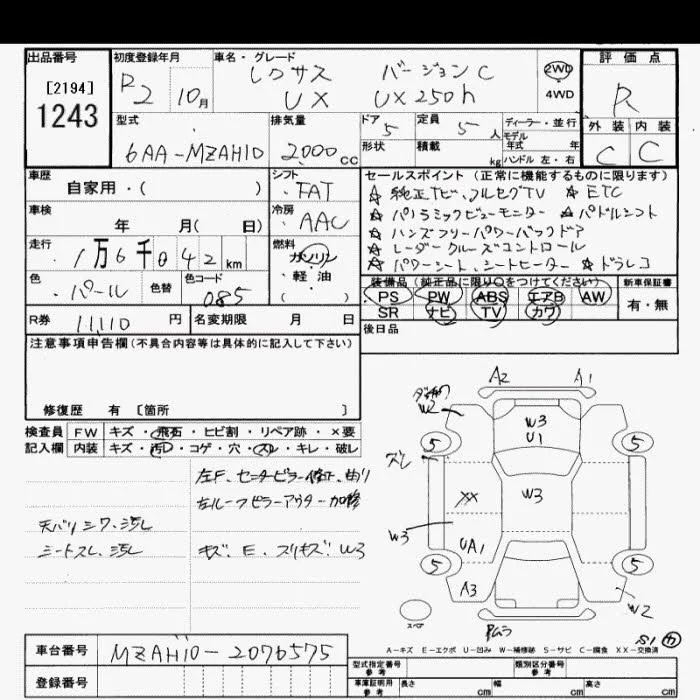 出品番号
[2194]
1243
初度登録年月
R2 10月
車名・グレード
レクサス バージョンC
UX UX250h
2WD
4WD
評価点
R
外装 内装
C C
型式
6AA-MZAH10
排気量
2000cc
ドア 5
定員 5人
形状
積載 kg
ディーラー・並行
モデル
年式 年
ハンドル 左・右
車歴
自家用・( )
シフト
FAT
車検
年 月( 日)
冷房
AAC
走行
1万6千042km
燃料
ガソリン
・軽油・
( )
色
パール
色替
色コード
085
R券 11,110 円
名変期限 月 日
セールスポイント(正常に機能するものに限ります)
☆純正TVナビ、フルセグTV ☆ETC
☆パノラミックビューモニター ☆パドルシフト
☆ハンズフリーパワーバックドア
☆レーダークルーズコントロール
☆パワーシート、シートヒーター ☆ドラレコ
装備品(純正品に限り○をつけてください)
PS PW ABS エアB AW
SR ナビ TV カワ
新車保証書
有・無
後日品
注意事項申告欄(不具合内容等は具体的に記入して下さい)
修復歴 有 〔箇所 〕
検査員 FW キズ・飛石・ヒビ割・リペア跡・×要
記入欄 内装 キズ・汚れ・コゲ・穴・スレ・キレ・破レ
左F、センターピラー修正、曲り
左ルーフピラーアウター加修
天バリシワ、汚れ
シートスレ、汚れ
キズ、E、スリキズ、W3
A2 A1
W2
W3
U1
5 5
ズレ
XX
W3
W3
UA1
5 5
A3
W2
スペア
S1
A-キズ E-エクボ U-凹み W-補修跡 S-サビ C-腐食 XX-交換済
車台番号 MZAH10-2076575
登録番号
型式指定番号
参考
類別区分番号
参考
車庫証明用
参考
長さ cm 幅 cm 高さ cm